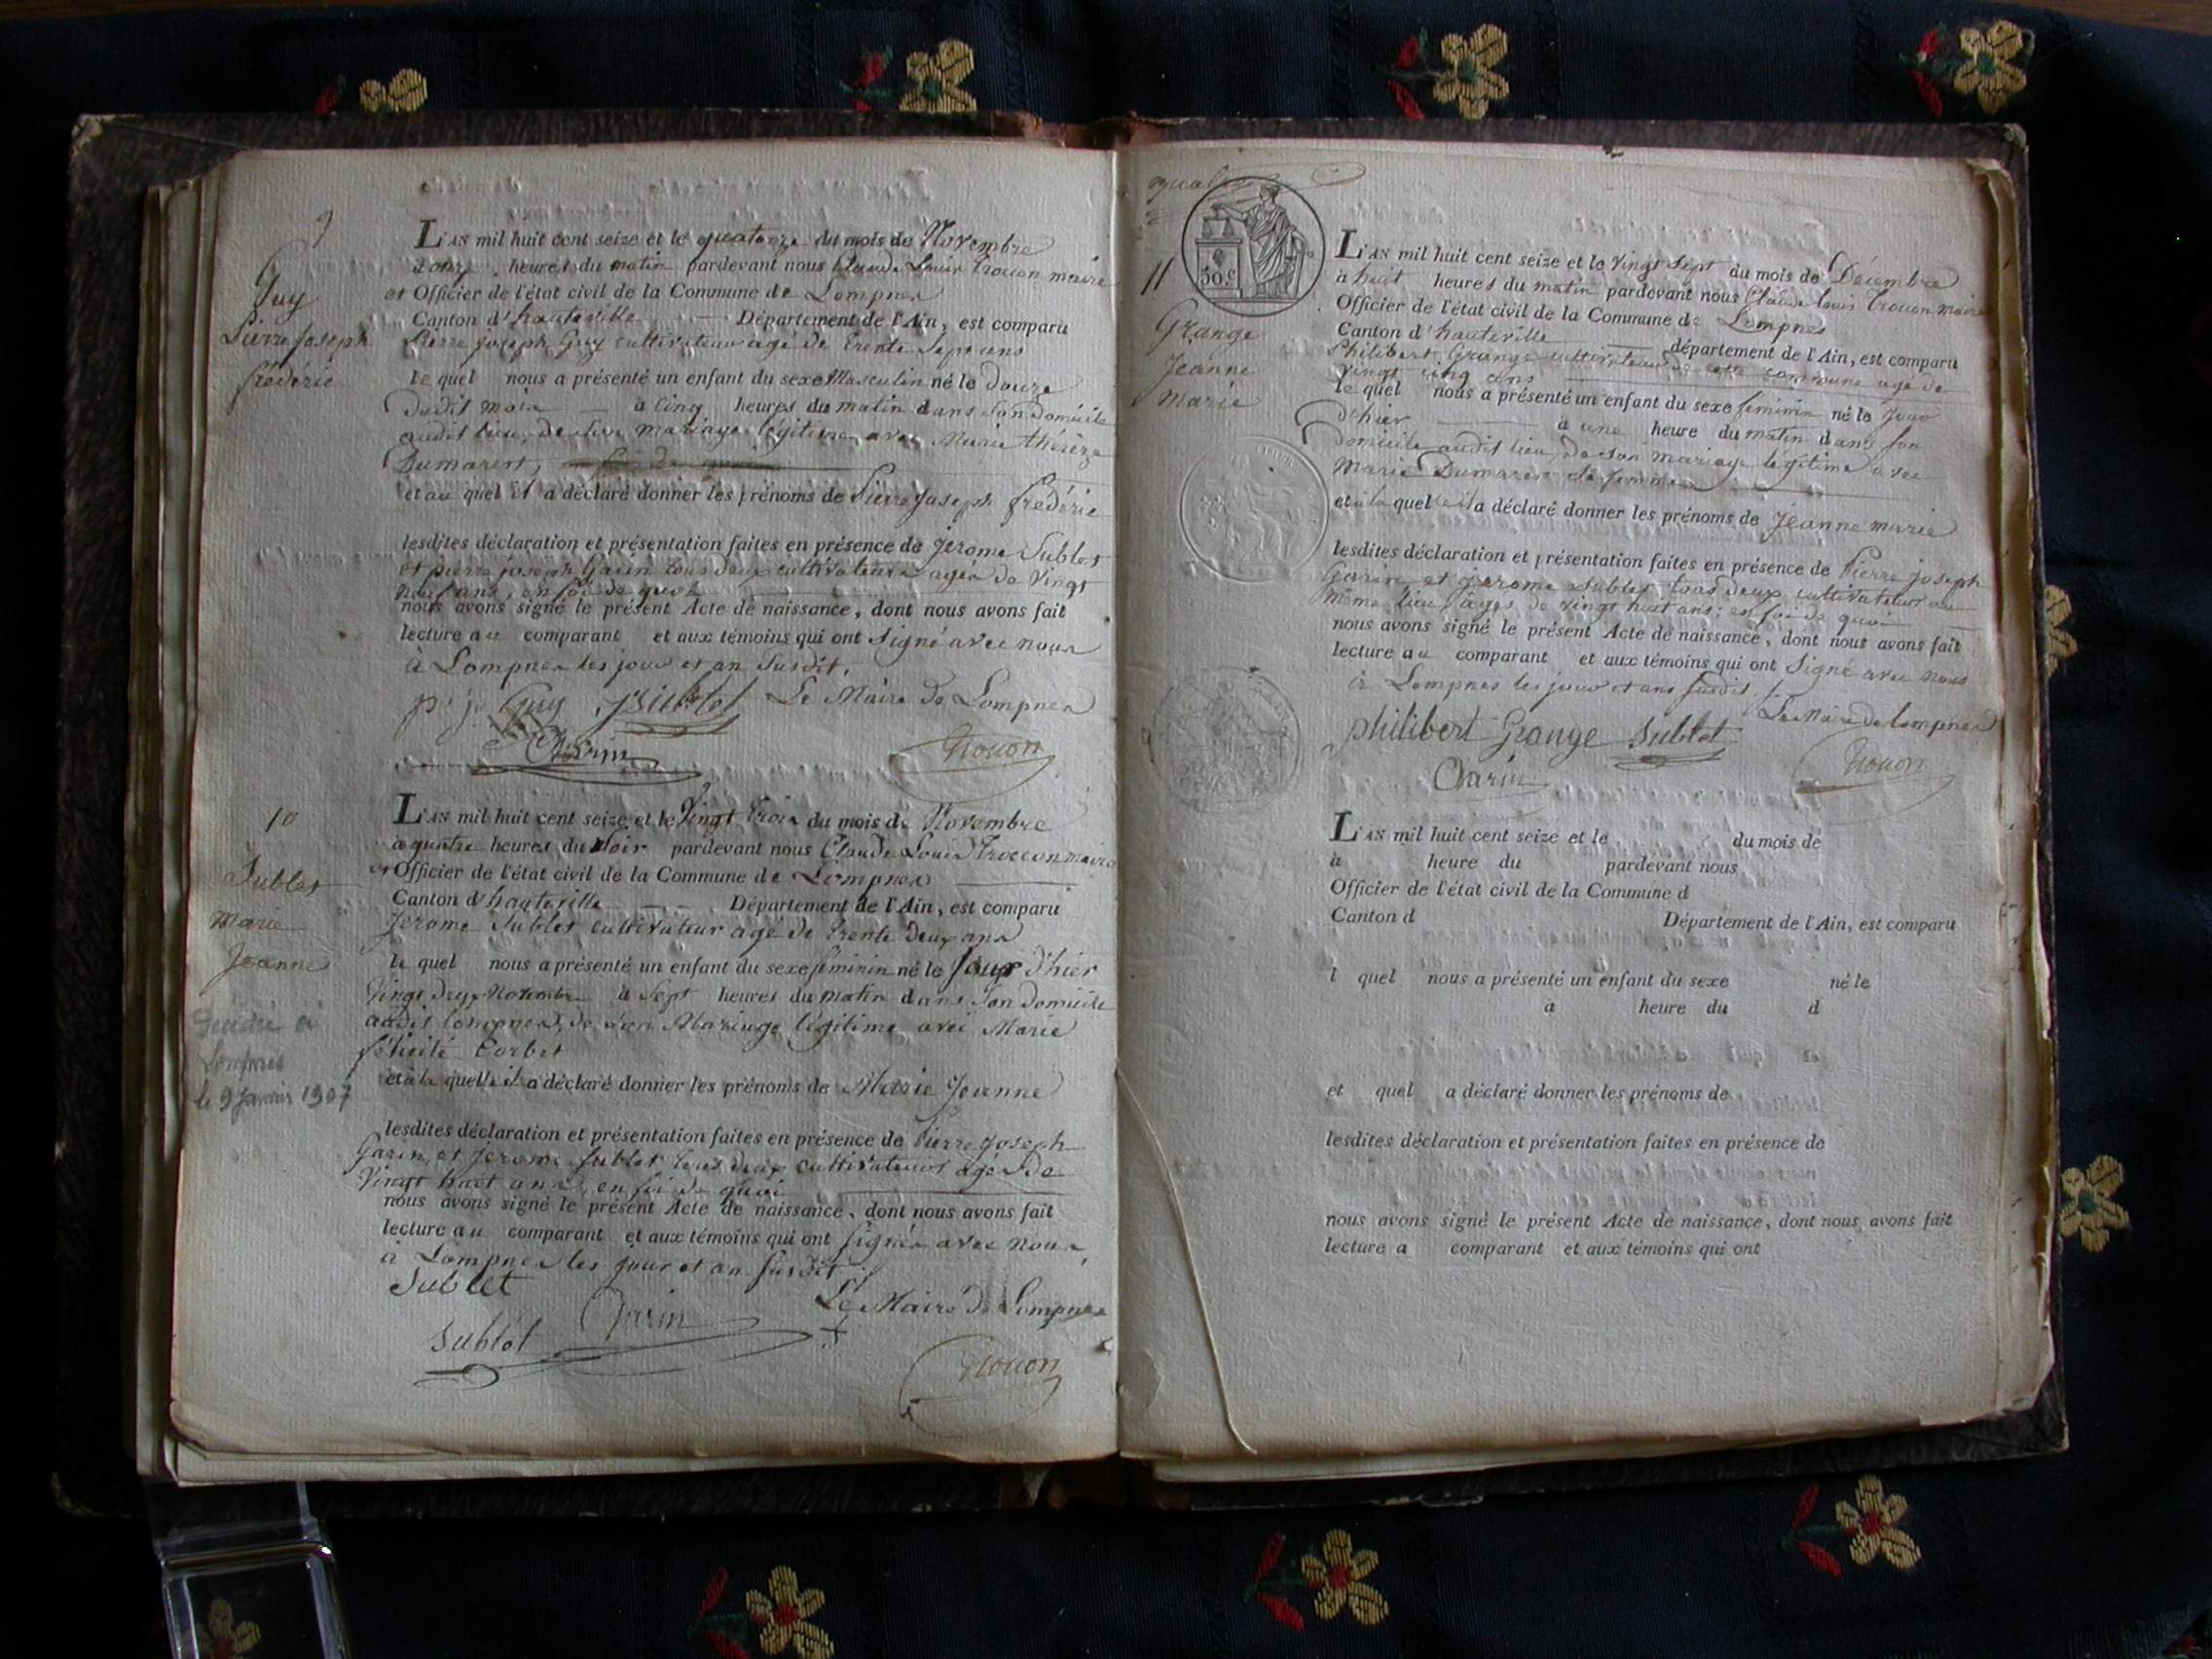 9
Guy
Pierre Joseph
frédéric
L'AN mil huit cent seize et le quatorze du mois de Novembre
à onze heures du matin pardevant nous Claude Louis trocon maire
et Officier de l'état civil de la Commune de Lompnes
Canton d'hauteville Département de l'Ain, est comparu
Pierre joseph Guy cultivateur agé de trente Sept ans
le quel nous a présenté un enfant du sexe Masculin né le douze
dudit mois à cinq heures du matin dans Son domicile
audit lieu, de Son mariage légitime avec Marie thérèze
Dumarest,
et au quel il a déclaré donner les prénoms de Pierre Joseph frédéric
lesdites déclaration et présentation faites en présence de Jerome Sublet
et pierre joseph Garin tous deux cultivateurs agés de vingt
huit ans, en foi de quoi
nous avons signé le présent Acte de naissance, dont nous avons fait
lecture au comparant et aux témoins qui ont Signé avec nous
à Lompnes les jour et an Susdit.
p. j. Guy jSublet Le Maire de Lompnes
Garin Trocon
10
Sublet
Marie
Jeanne
Lompnes
le 9 Janvier 1907
L'AN mil huit cent seize et le Vingt trois du mois de Novembre
à quatre heures du Soir pardevant nous Claude Louis Troccon maire
et Officier de l'état civil de la Commune de Lompnes
Canton d'hauteville Département de l'Ain, est comparu
Jerome Sublet cultivateur agé de trente deux ans
le quel nous a présenté un enfant du sexe feminin né le Jour d'hier
Vingt deux Novembre à Sept heures du matin dans Son domicile
audit Lompnes, de Son Mariage légitime avec Marie
félicité Corbet
et à la quelle il a déclaré donner les prénoms de Marie Jeanne
lesdites déclaration et présentation faites en présence de Pierre Joseph
Garin et Jerome Sublet tous deux cultivateurs agés de
Vingt huit ans, en foi de quoi
nous avons signé le présent Acte de naissance, dont nous avons fait
lecture au comparant et aux témoins qui ont Signés avec nous
à Lompnes les jour et an Susdit
Sublet
Garin Le Maire de Lompnes
Sublet
Trocon
50 c.
11
Grange
Jeanne
Marie
L'AN mil huit cent seize et le Vingt Sept du mois de Décembre
à huit heures du matin pardevant nous Claude louis trocon maire
Officier de l'état civil de la Commune de Lompnes
Canton d'hauteville département de l'Ain, est comparu
Philibert Grange cultivateur de cette commune agé de
vingt cinq ans
le quel nous a présenté un enfant du sexe feminin né le Jour
d'hier à une heure du matin dans Son
domicile audit lieu, de son mariage légitime avec
Marie Dumarest Sa femme
et à la quelle il a déclaré donner les prénoms de Jeanne marie
lesdites déclaration et présentation faites en présence de Pierre joseph
Garin et Jerome Sublet tous deux cultivateurs au
même lieu, agés de vingt huit ans; en foi de quoi
nous avons signé le présent Acte de naissance, dont nous avons fait
lecture au comparant et aux témoins qui ont Signé avec nous
à Lompnes les jour et ans Susdit.
Le Maire de Lompnes
philibert Grange Sublet
Garin Trocon
L'AN mil huit cent seize et le du mois de
à heure du pardevant nous
Officier de l'état civil de la Commune d
Canton d Département de l'Ain, est comparu
l quel nous a présenté un enfant du sexe né le
à heure du d
et quel a déclaré donner les prénoms de
lesdites déclaration et présentation faites en présence de
nous avons signé le présent Acte de naissance, dont nous avons fait
lecture a comparant et aux témoins qui ont